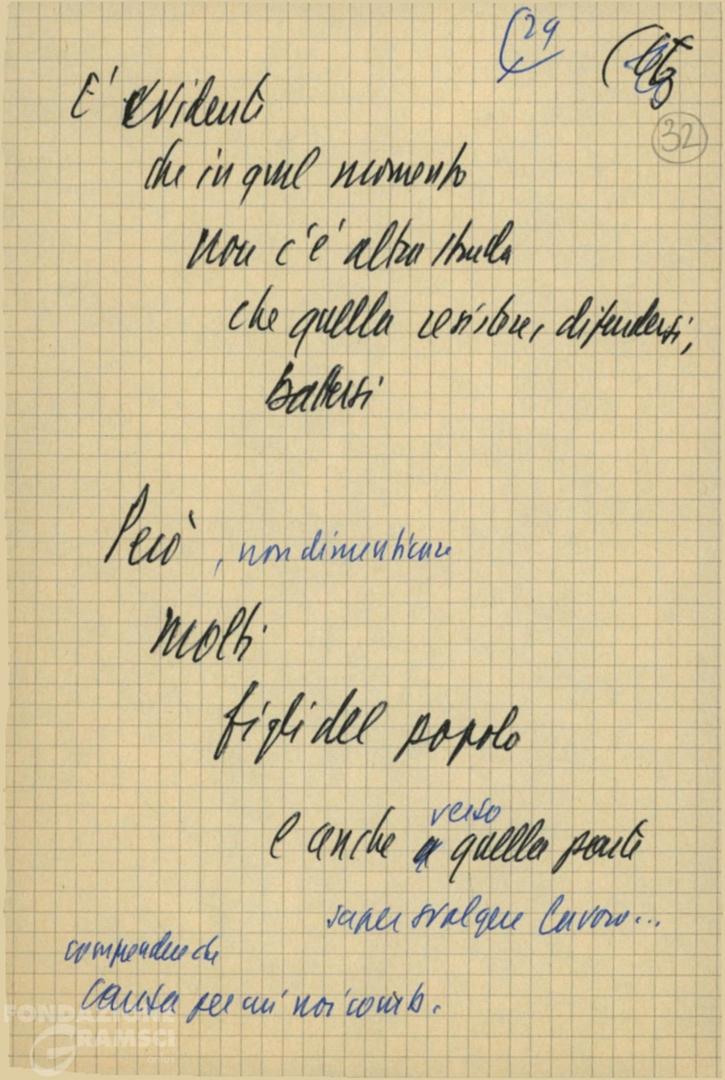 (29
32
E' evidente
che in quel momento
non c'è altra strada
che quella resistere, difendersi,
battersi
Però, non dimenticare
molti
figli del popolo
verso
e anche a quella parte
saper svolgere lavoro...
comprendere che
causa per cui noi comb.
FONDAZIONE
GRAMSCI